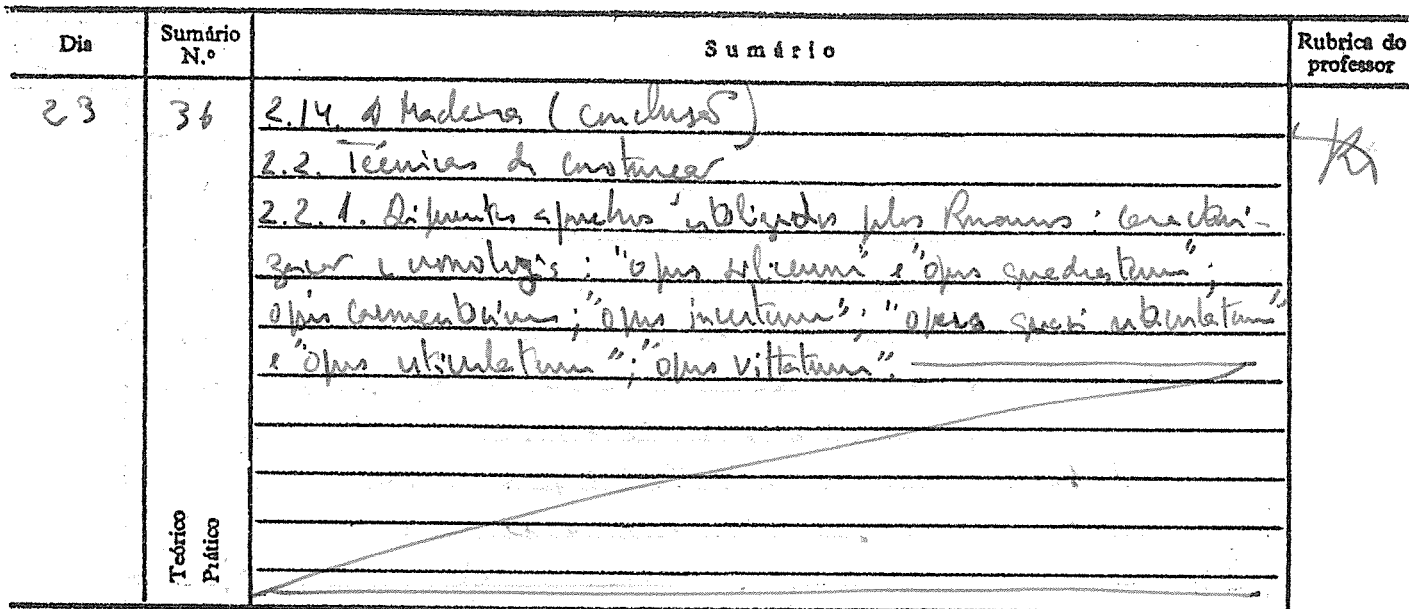 Dia
Sumário N.º
Sumário
Rubrica do professor
23
36
2.14. A Madeira (conclusão)
2.2. Técnicas de construção
2.2.1. Diferentes aparelhos utilizados pelos Romanos: caracteri-
zação e cronologia: "opus siliceum" e "opus quadratum";
opus caementicium; "opus incertum"; "opera quasi reticulatum"
e "opus reticulatum"; "opus vittatum".
Teórico
Prático